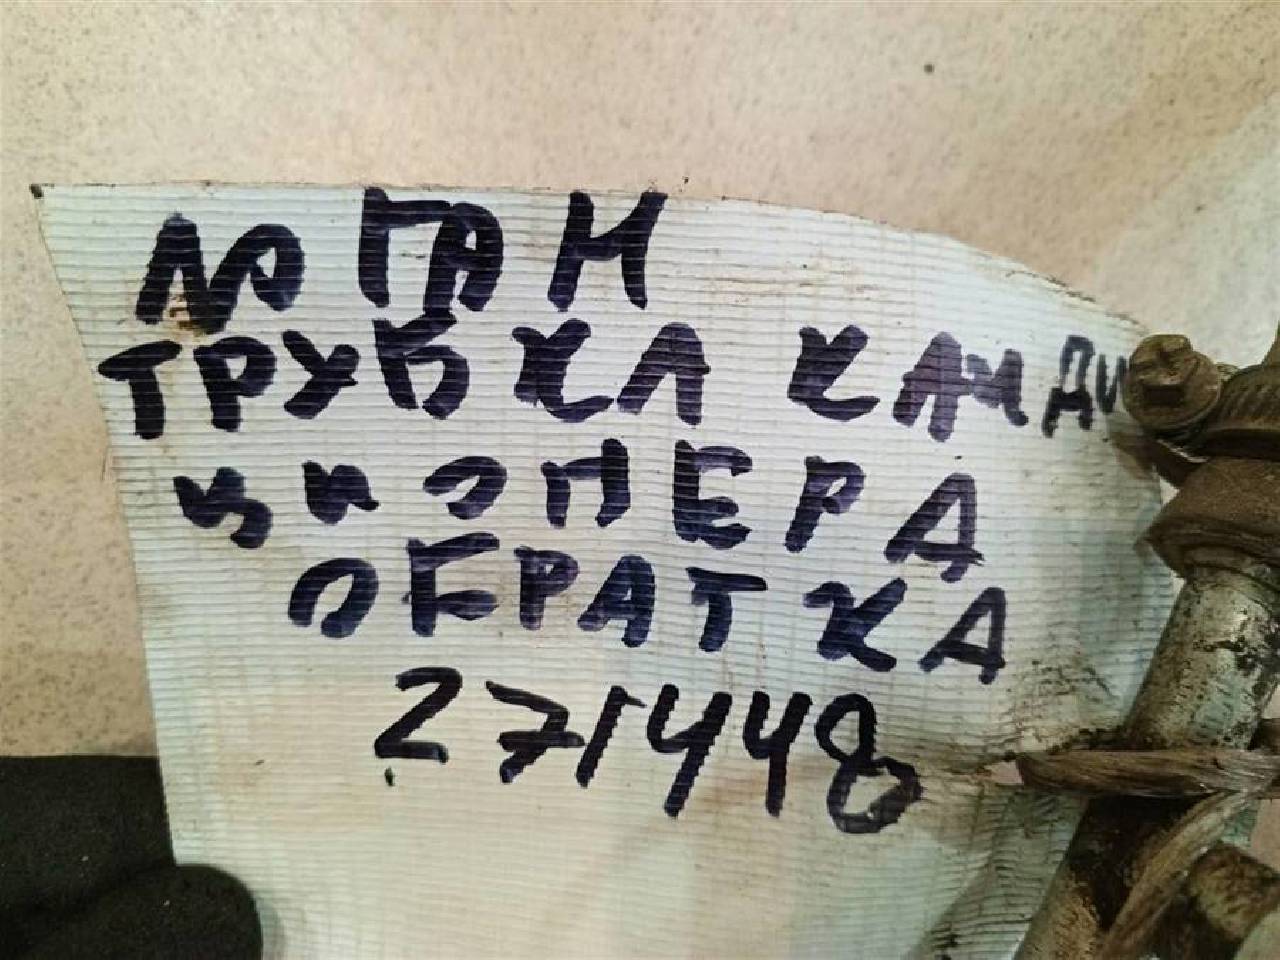 ЛОГАН
ТРУБКА КАНДИ
ЦИОНЕРА
ОБРАТКА
271448